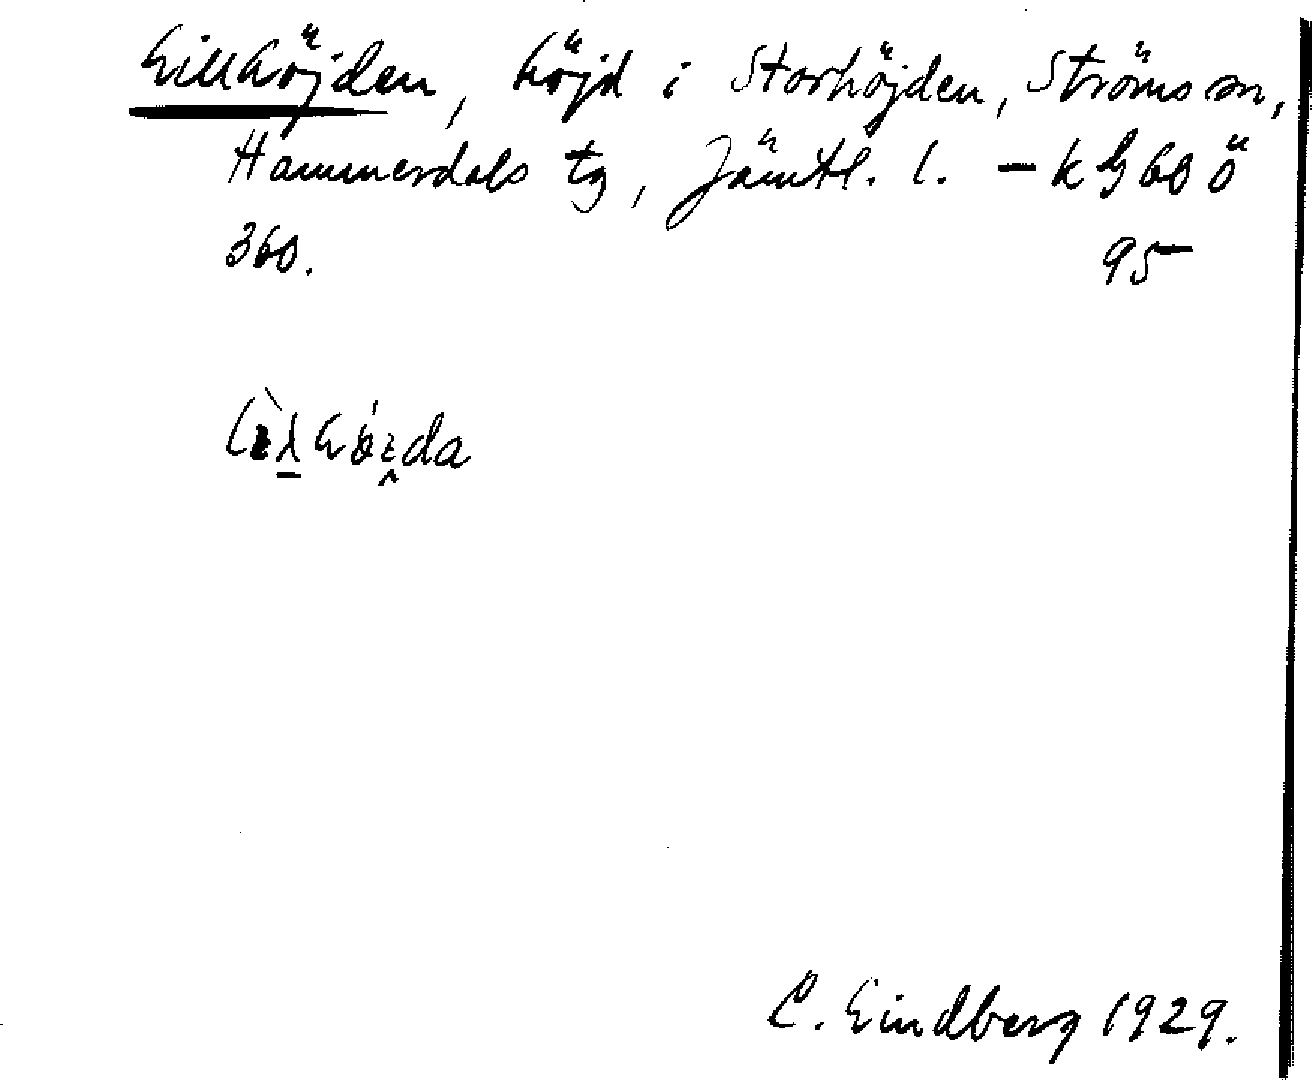 Lillhöjden, höjd i Storhöjden, Ströms sn,
Hammerdals tg, Jämtl. l. — k G 60 ö
360. 95
C. Lindberg 1929.